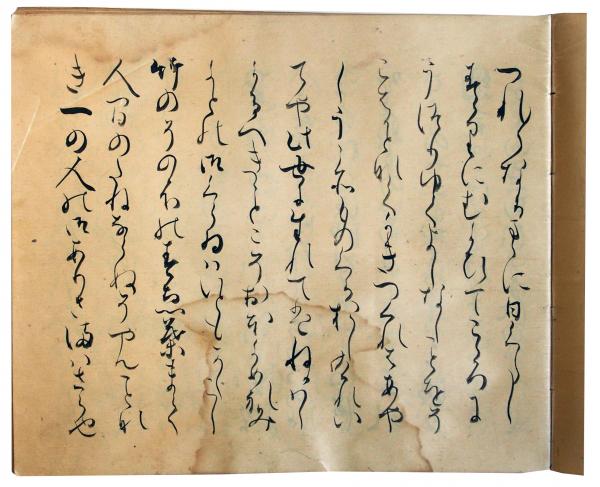 つれ〱なるまゝに日くらし
すゝりにむかひてこゝろに
うつりゆくよしなしことをそ
こはかとなくかきつくれはあや
しうこそものくるおしけれい
てや此世に生れてはねかはし
かるへきことこそおほかめれみ
かとの御くらゐはいともかしこし
竹のそのふのすゑ葉まて
人間のたねならぬそやんことな
き一の人の御ありさまはさら也